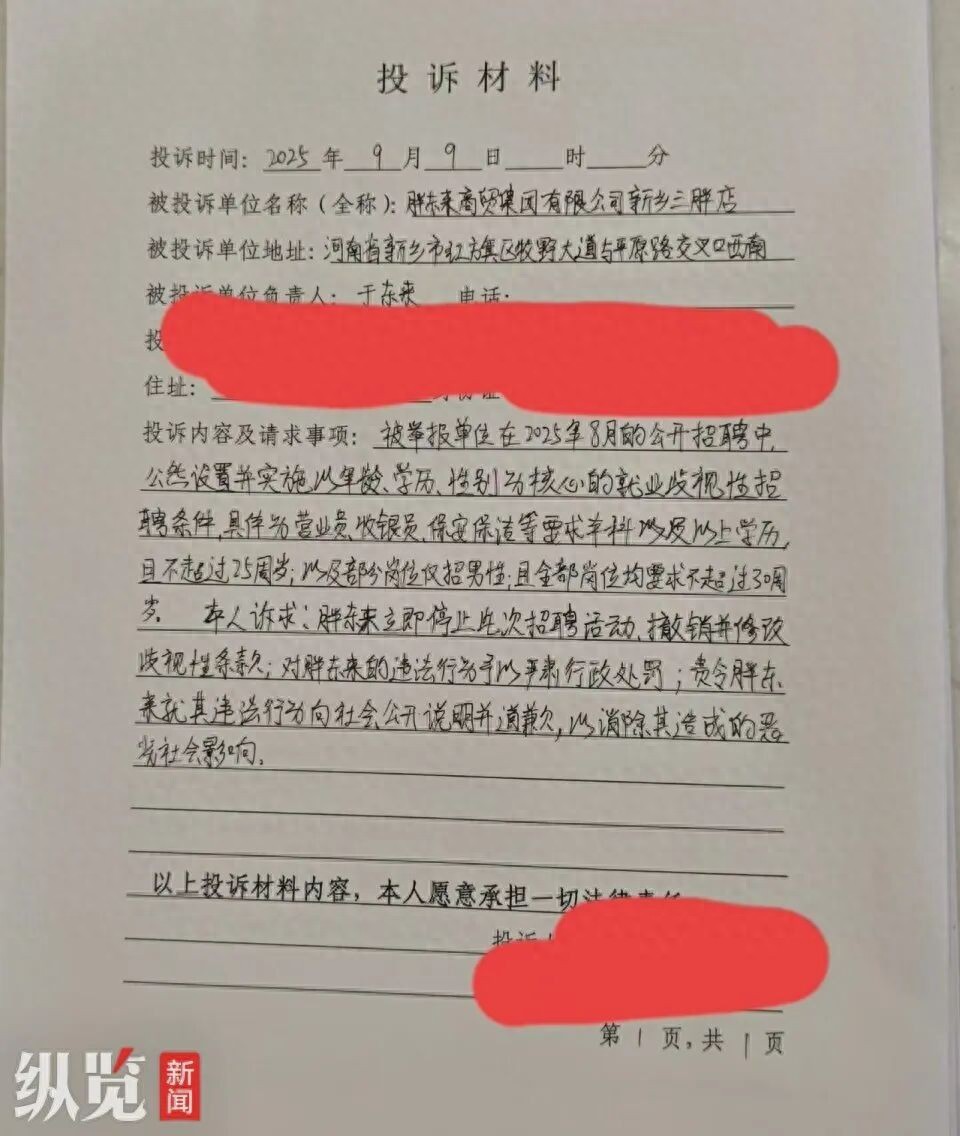 投诉材料
投诉时间：2025年9月9日 时 分
被投诉单位名称（全称）：胖东来商贸集团有限公司新乡三胖店
被投诉单位地址：河南省新乡市红旗区牧野大道与平原路交叉口西南
被投诉单位负责人：于东来 电话：
投
住址：
投诉内容及请求事项：被举报单位在2025年8月的公开招聘中，
公然设置并实施以年龄、学历、性别为核心的就业歧视性招
聘条件，具体为营业员、收银员、保安保洁等要求本科以及以上学历，
且不超过25周岁；以及部分岗位仅招男性；且全部岗位均要求不超过30周
岁。 本人诉求：胖东来立即停止此次招聘活动，撤销并修改
歧视性条款；对胖东来的违法行为予以严肃行政处罚；责令胖东
来就其违法行为向社会公开说明并道歉，以消除其造成的恶
劣社会影响。
以上投诉材料内容，本人愿意承担一切法律责任
投诉人
第1页，共1页
纵览新闻